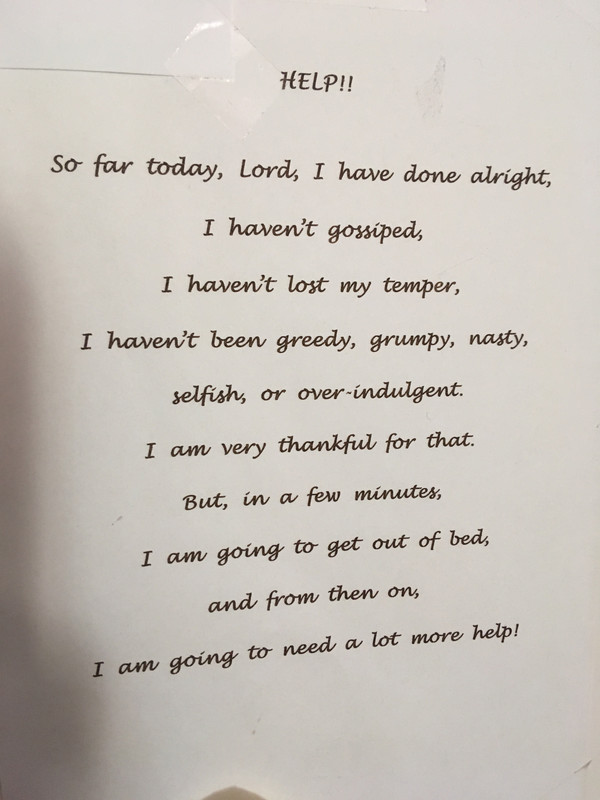 HELP!!
So far today, Lord, I have done alright,
I haven't gossiped,
I haven't lost my temper,
I haven't been greedy, grumpy, nasty,
selfish, or over-indulgent.
I am very thankful for that.
But, in a few minutes,
I am going to get out of bed,
and from then on,
I am going to need a lot more help!